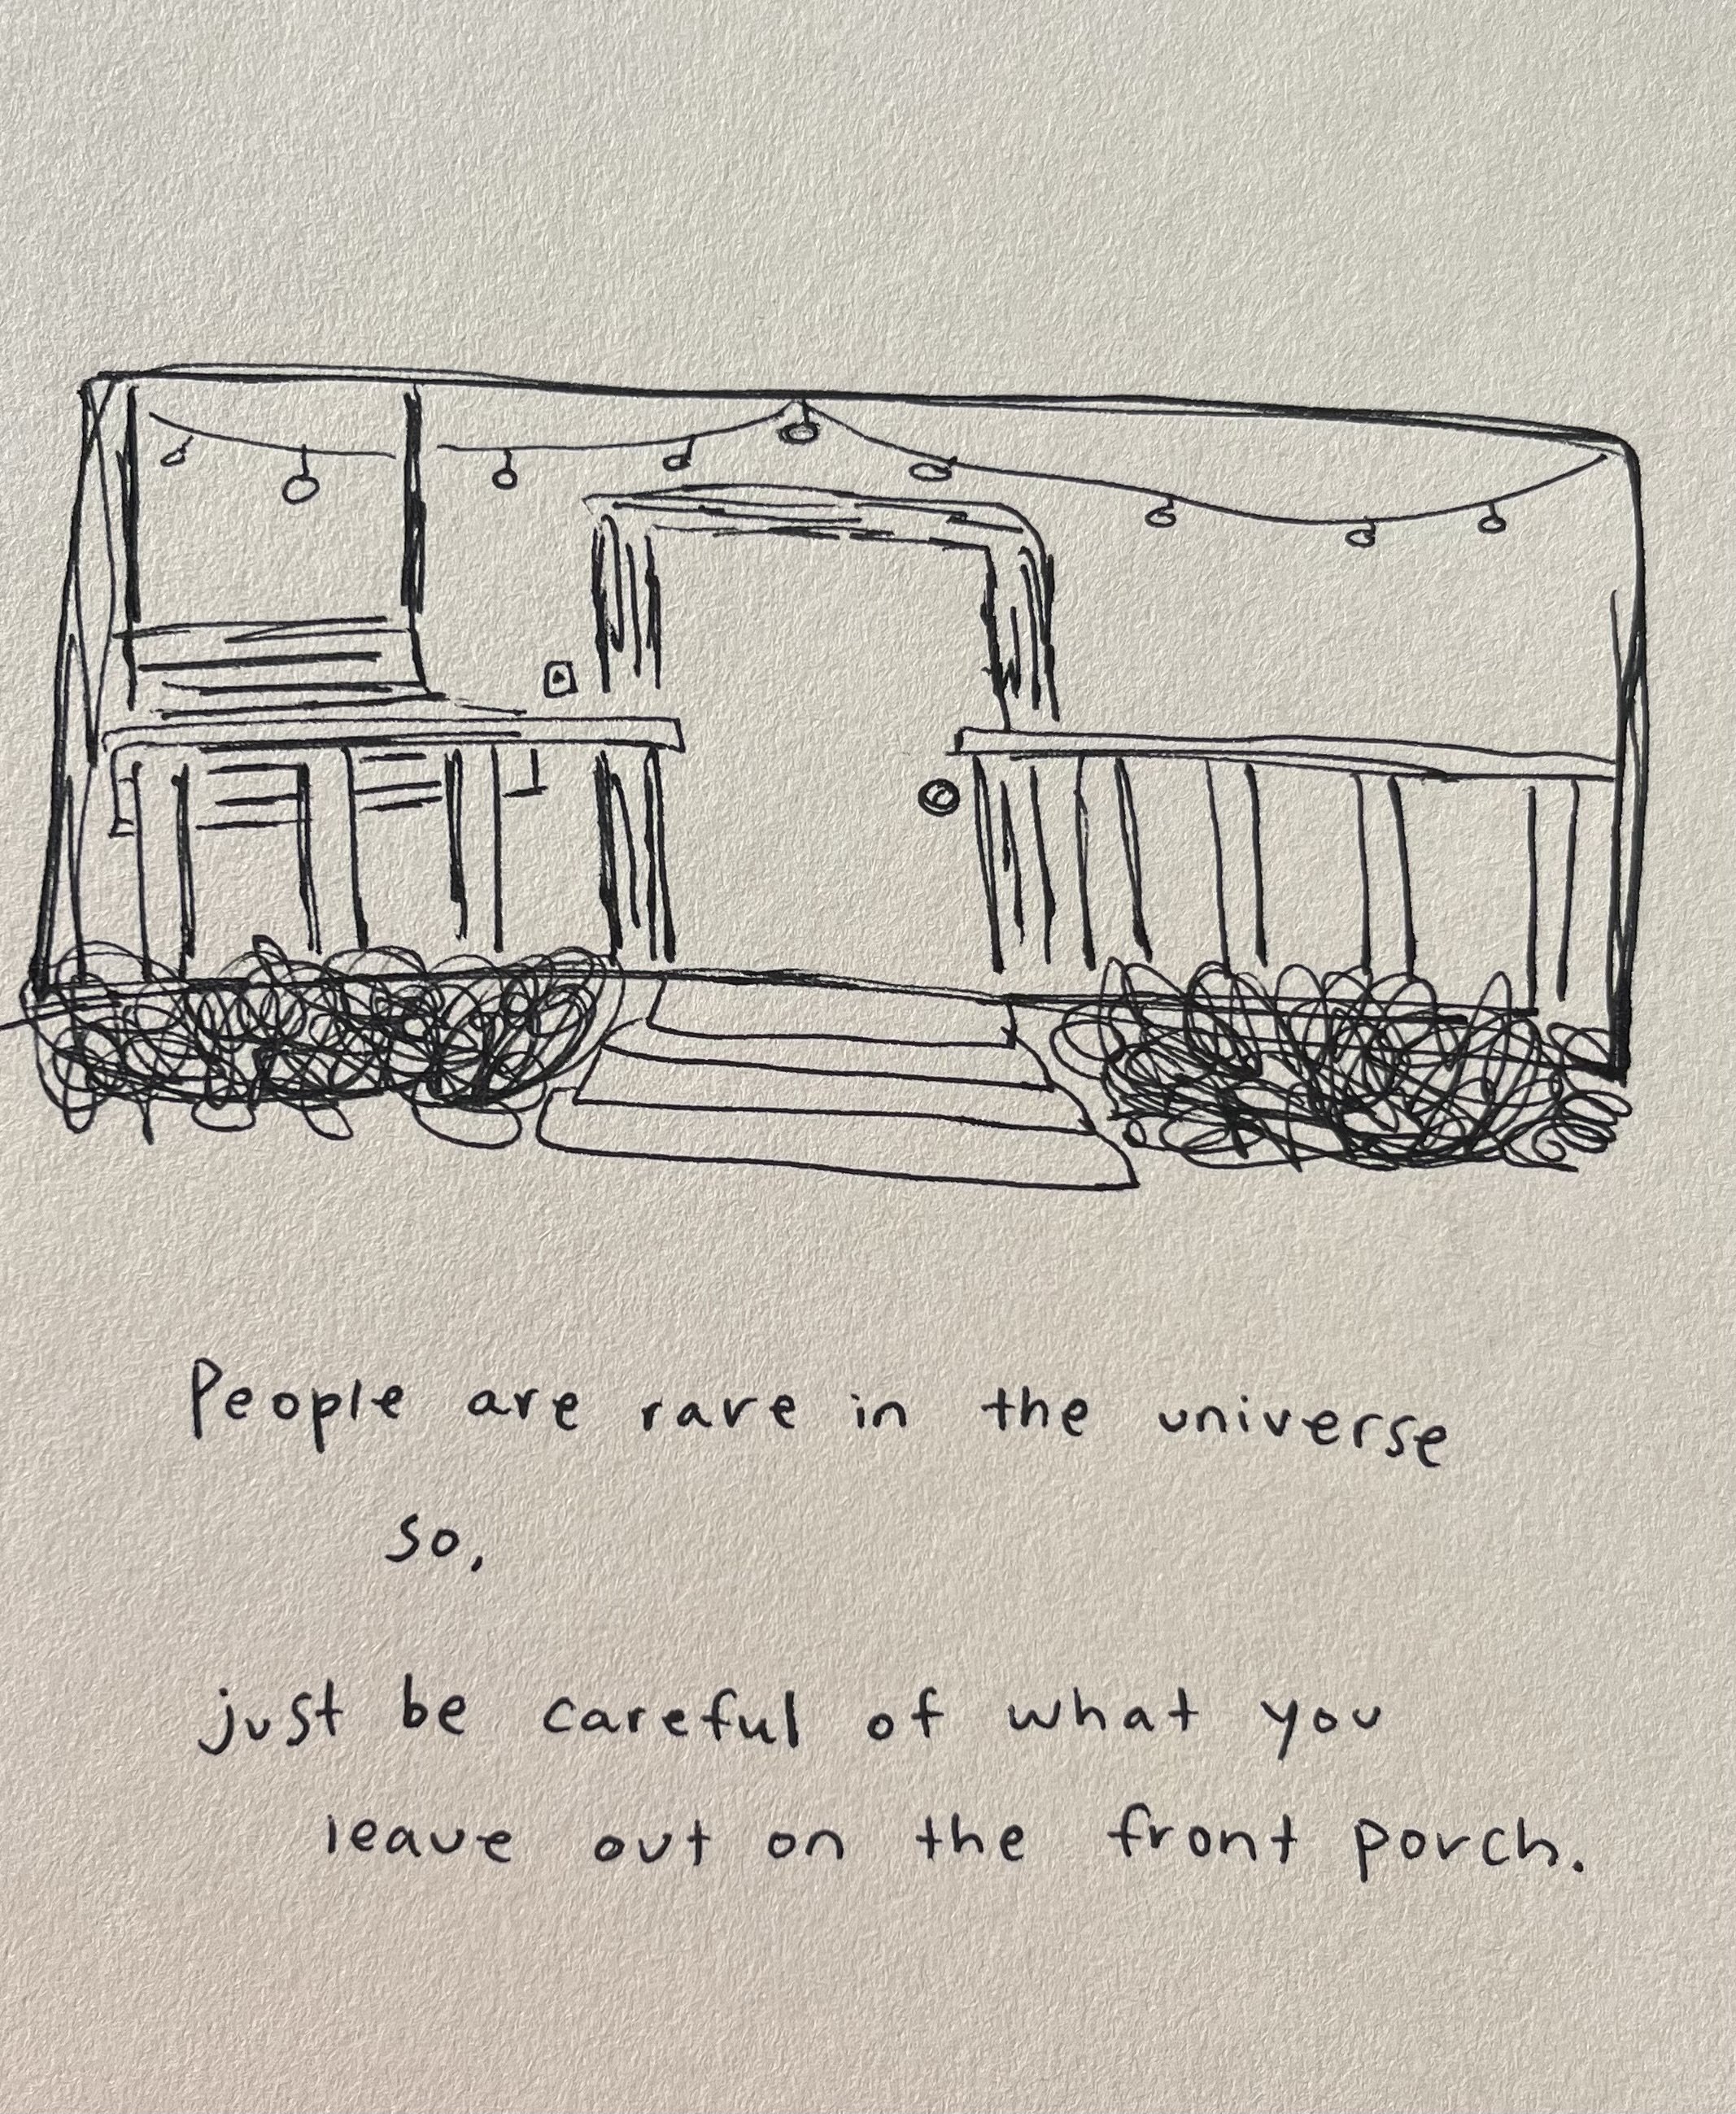 People are rare in the universe
so,
just be careful of what you
leave out on the front porch.